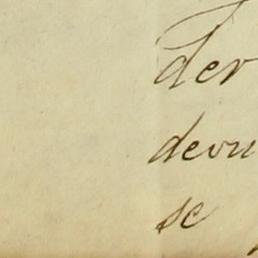 der
devu
se